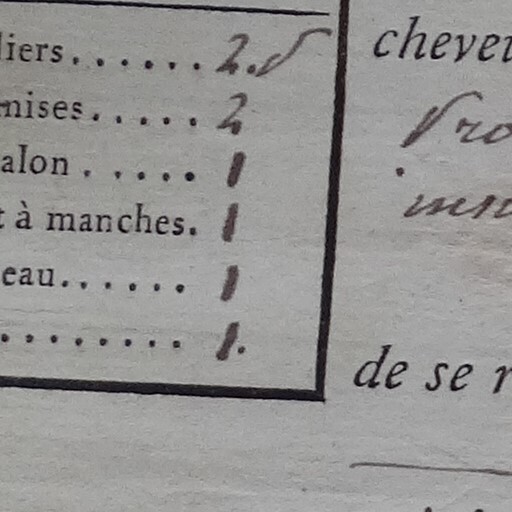 liers...... 2.
mises..... 2
alon ..... 1
t à manches. 1
eau...... 1
........ 1.
cheveu
de se r